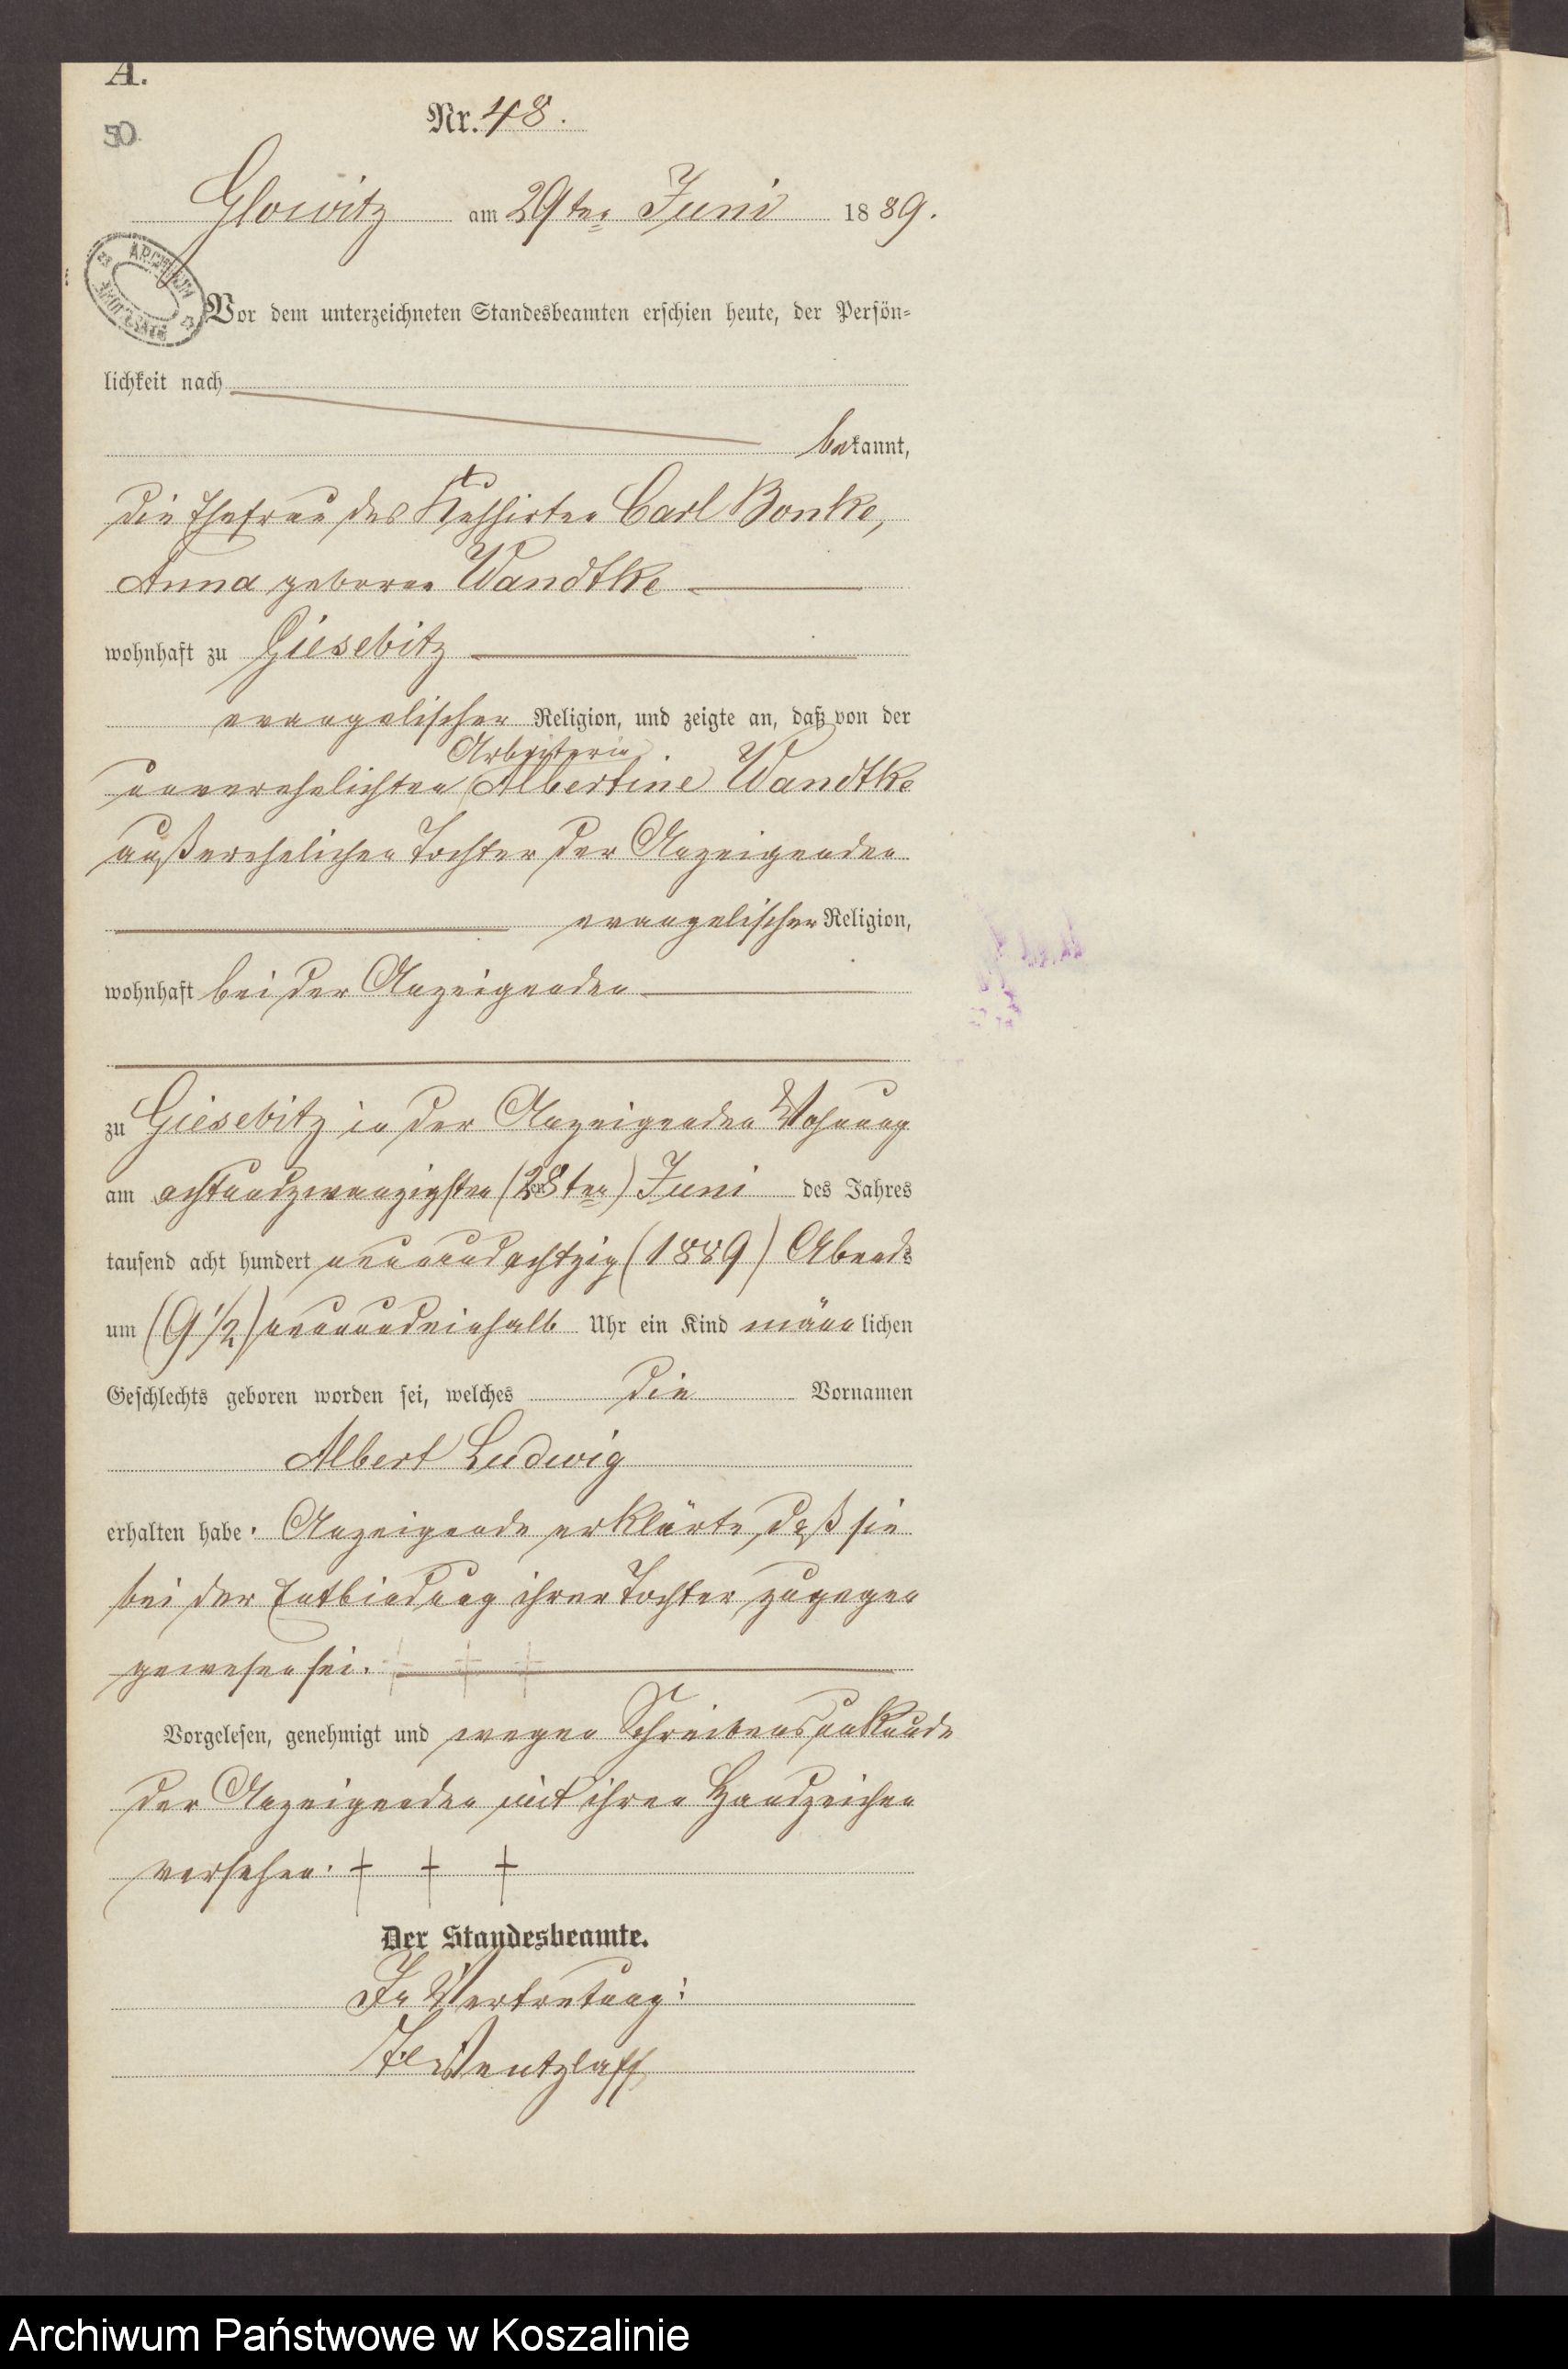 A.
50.
Nr. 48.
Glowitz am 29ten Juni 1889.
ARCHIWUM
Vor dem unterzeichneten Standesbeamten erschien heute, der Persön-
lichkeit nach
bekannt,
die Ehefrau des Kuhhirten Carl Bonke,
Anna geboren Wandtke
wohnhaft zu Giesebitz
evangelischer Religion, und zeigte an, daß von der
Arbeiterin
unverehelichten Albertine Wandtke
außerehelichen Tochter der Anzeigenden
evangelischer Religion,
wohnhaft bei der Anzeigenden
zu Giesebitz in der Anzeigenden Wohnung
am achtundzwanzigsten (28ten) Juni des Jahres
tausend acht hundert neunundachtzig (1889) Abends
um (9 1/2) neunundeinhalb Uhr ein Kind männlichen
Geschlechts geboren worden sei, welches die Vornamen
Albert Ludwig
erhalten habe. Anzeigende erklärte, daß sie
bei der Entbindung ihrer Tochter zugegen
gewesen sei.
Vorgelesen, genehmigt und wegen Schreibensunkunde
der Anzeigenden mit ihren Handzeichen
versehen: + + +
Der Standesbeamte.
In Vertretung:
Wentzlaff
Archiwum Państwowe w Koszalinie